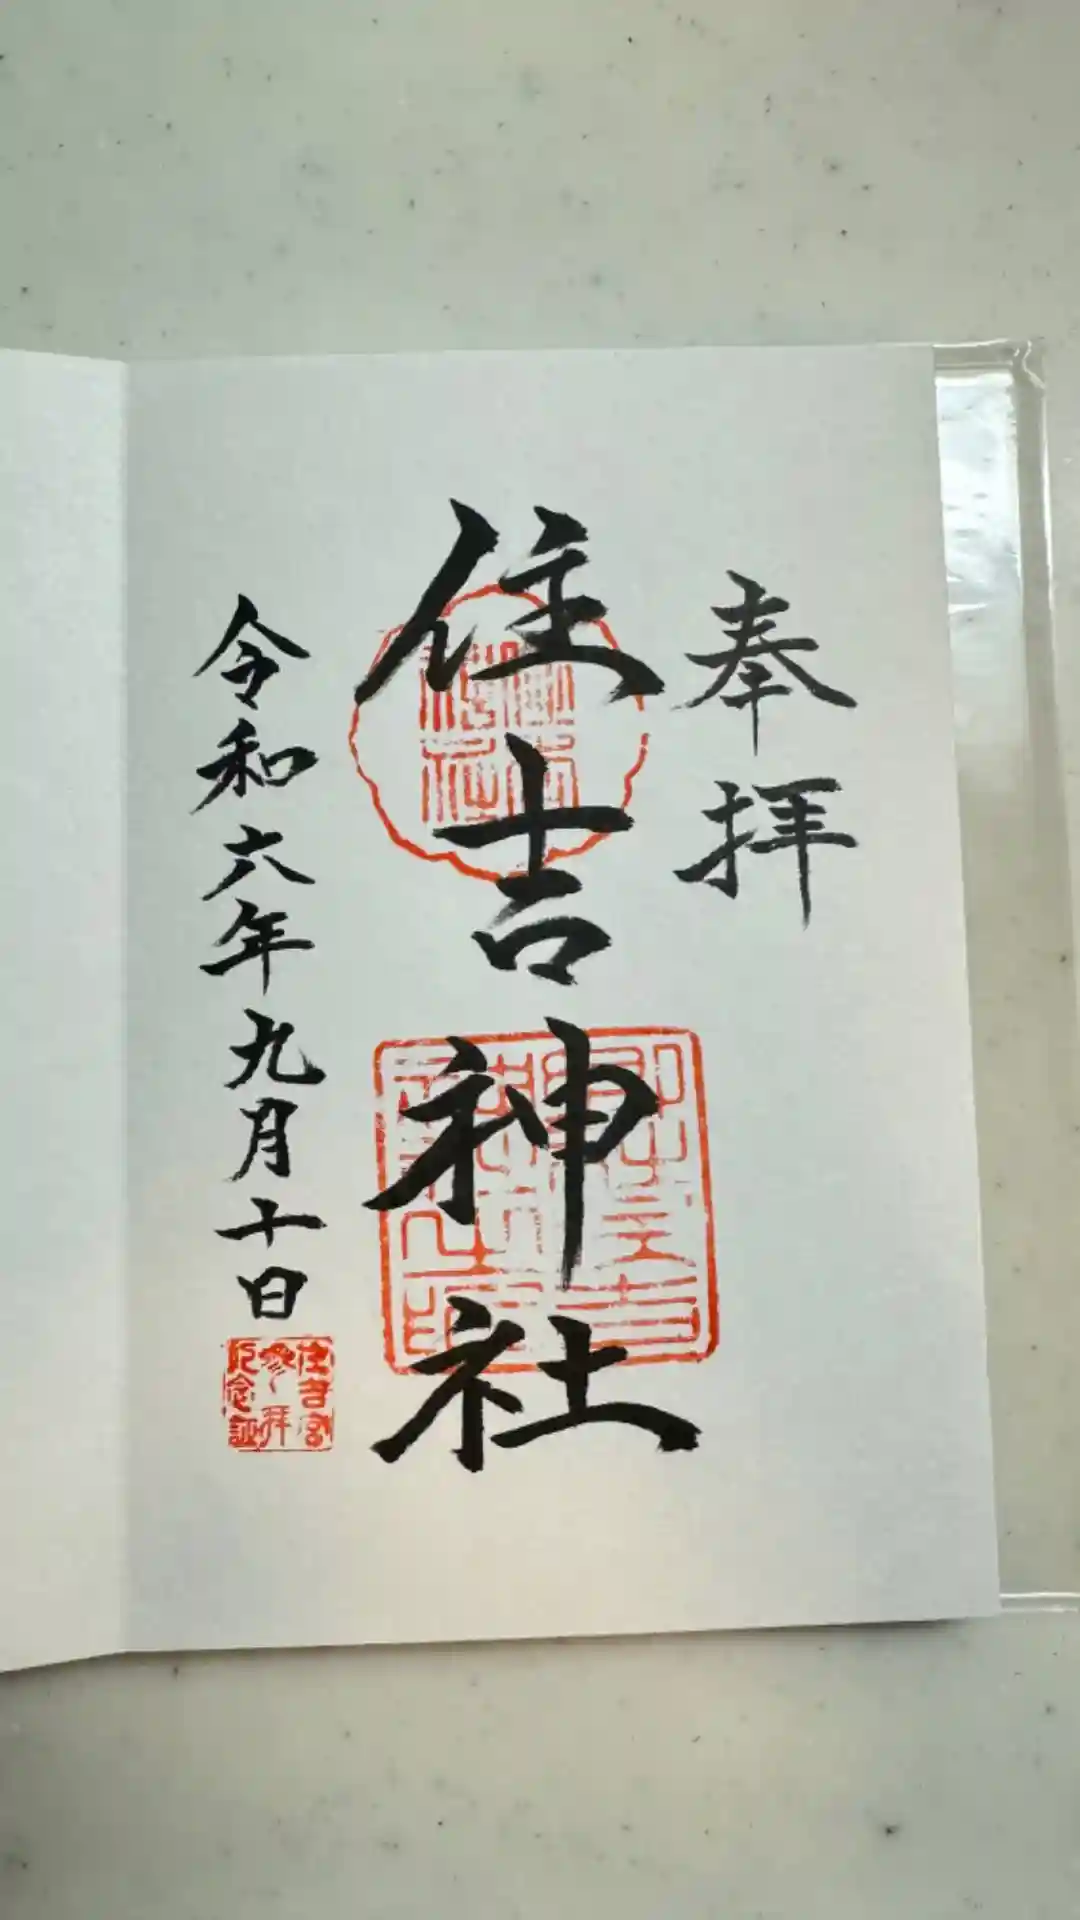 奉拝
住吉神社
令和六年九月十日
住吉宮
参拝
記念証